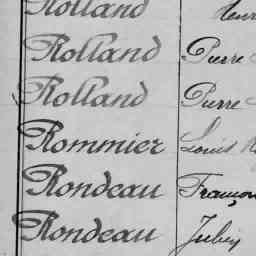 Rolland
Rolland Pierre
Rolland Pierre
Rommier Louis
Rondeau Franço
Rondeau Jules